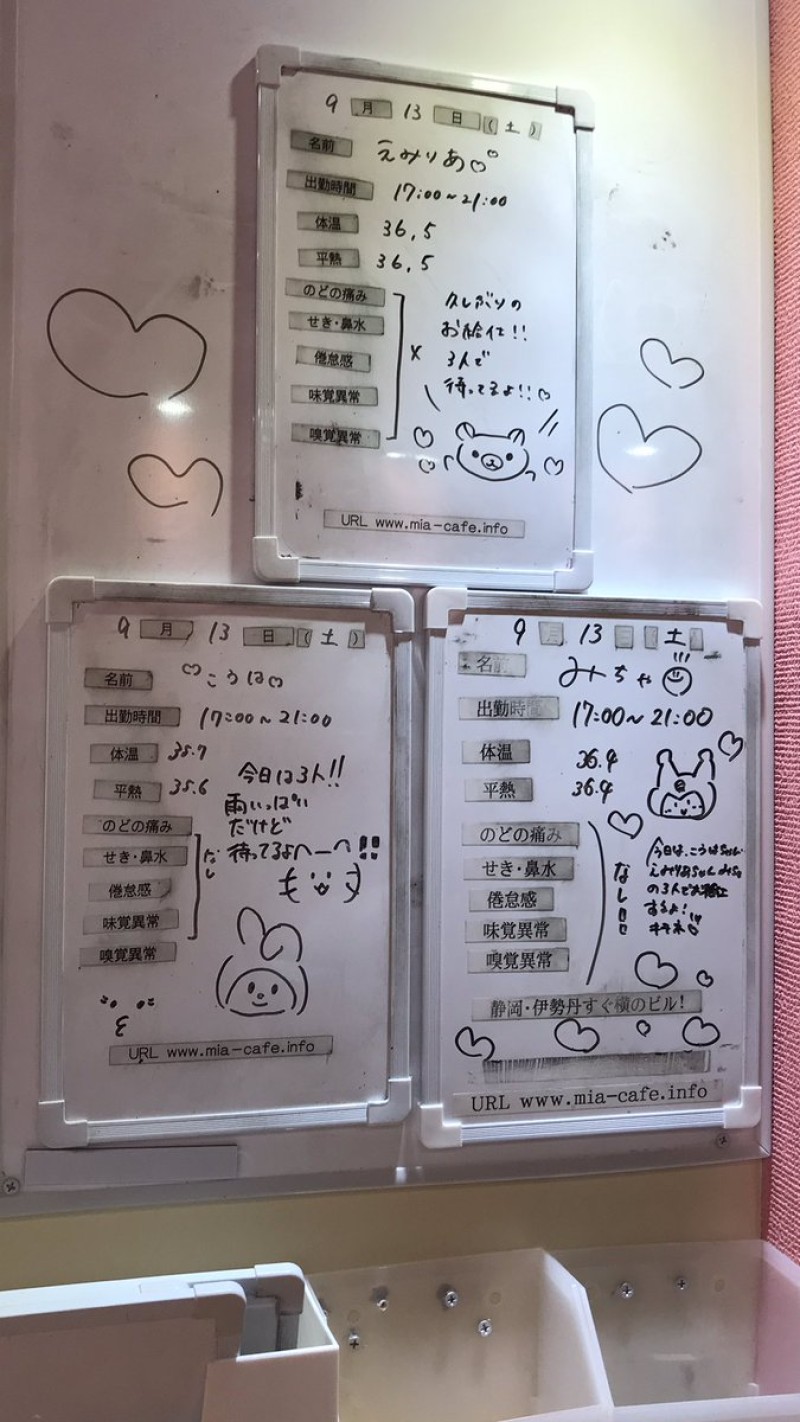 9月13日(土)
名前 えみりあ
出勤時間 17:00~21:00
体温 36.5
平熱 36.5
のどの痛み
せき・鼻水
倦怠感 ×
味覚異常
嗅覚異常
久しぶりの
お給仕!!
3人で
待ってるよ!!
URL www.mia-cafe.info
9月13日(土)
名前 こうは
出勤時間 17:00~21:00
体温 35.7
平熱 35.6
のどの痛み
せき・鼻水
倦怠感 なし
味覚異常
嗅覚異常
今日は3人!!
雨いっぱい
だけど
待ってるよへーへ!!
URL www.mia-cafe.info
9月13日(土)
名前 みちゃ
出勤時間 17:00~21:00
体温 36.4
平熱 36.4
のどの痛み
せき・鼻水
倦怠感 なし
味覚異常
嗅覚異常
今日は、こうはちゃん
えみりあちゃん みちゃ
の3人でお給仕
するよ!
静岡・伊勢丹すぐ横のビル!
URL www.mia-cafe.info